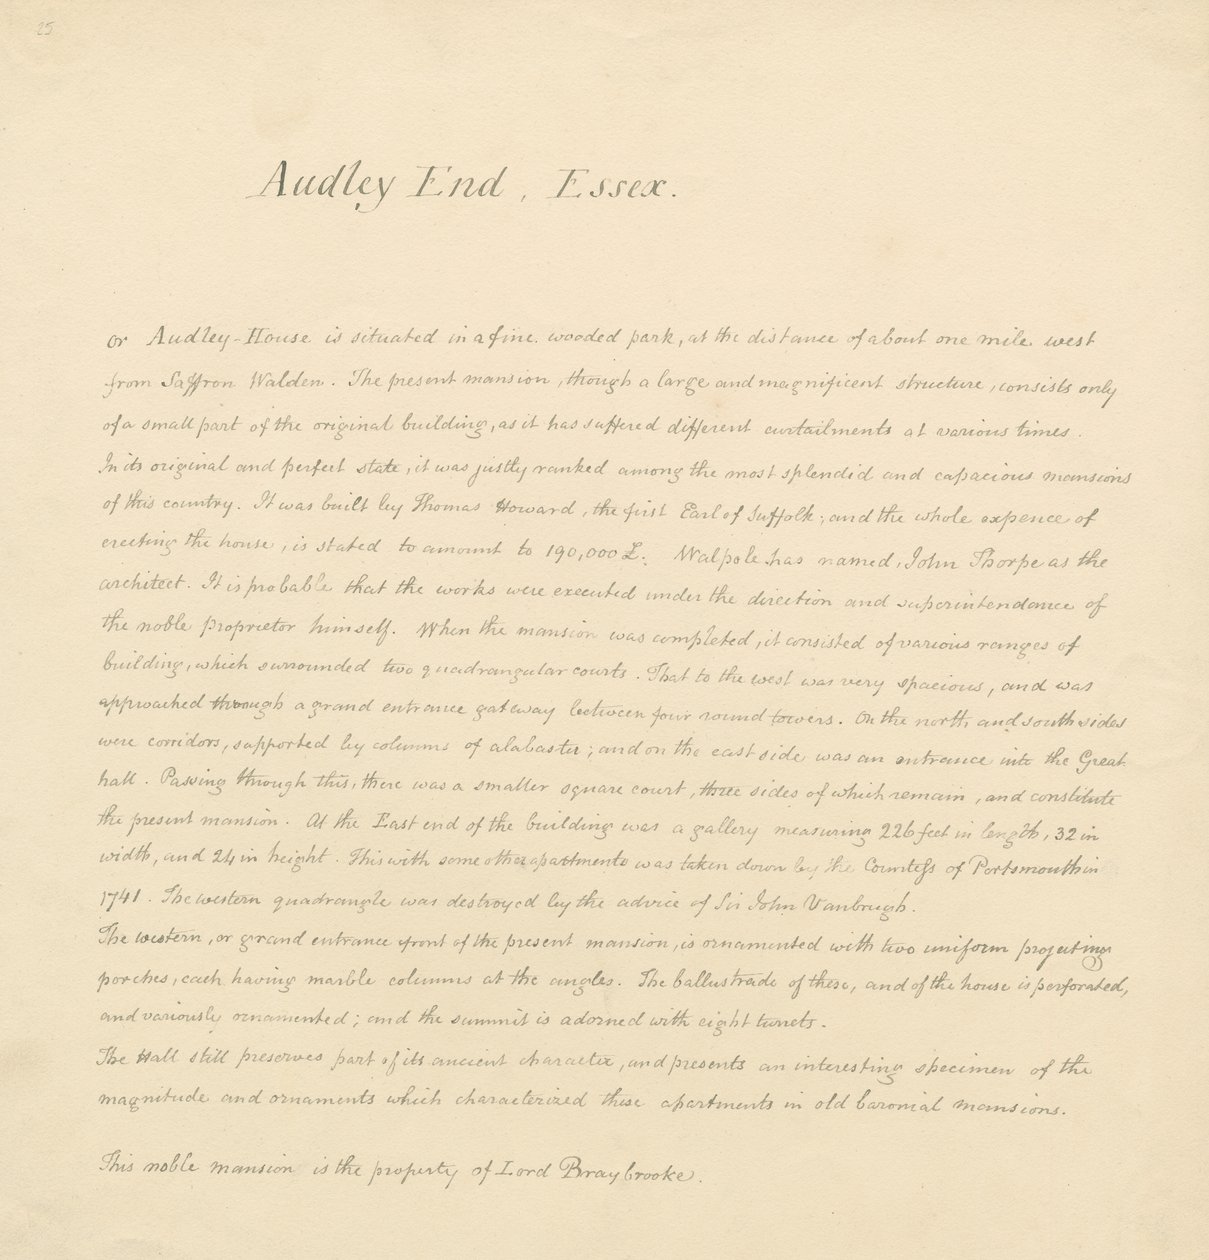 25
Audley End, Essex.
or Audley-House is situated in a fine wooded park, at the distance of about one mile west
from Saffron Walden. The present mansion, though a large and magnificent structure, consists only
of a small part of the original building, as it has suffered different curtailments at various times.
In its original and perfect state, it was justly ranked among the most splendid and capacious mansions
of this country. It was built by Thomas Howard, the first Earl of Suffolk; and the whole expence of
erecting the house, is stated to amount to 190,000 £. Walpole has named, John Thorpe as the
architect. It is probable that the works were executed under the direction and superintendance of
the noble proprietor himself. When the mansion was completed, it consisted of various ranges of
building, which surrounded two quadrangular courts. That to the west was very spacious, and was
approached through a grand entrance gateway between four round towers. On the north, and south sides
were corridors, supported by columns of alabaster; and on the east side was an entrance into the Great
hall. Passing through this, there was a smaller square court, three sides of which remain, and constitute
the present mansion. At the East end of the building was a gallery measuring 226 feet in length, 32 in
width, and 24 in height. This with some other apartments was taken down by the Countess of Portsmouth in
1741. The western quadrangle was destroyed by the advice of Sir John Vanbrugh.
The western, or grand entrance front of the present mansion, is ornamented with two uniform projecting
porches, each having marble columns at the angles. The ballustrade of these, and of the house is perforated,
and variously ornamented; and the summit is adorned with eight turrets.
The Hall still preserves part of its ancient character, and presents an interesting specimen of the
magnitude and ornaments which characterized these apartments in old baronial mansions.
This noble mansion is the property of Lord Braybrooke.